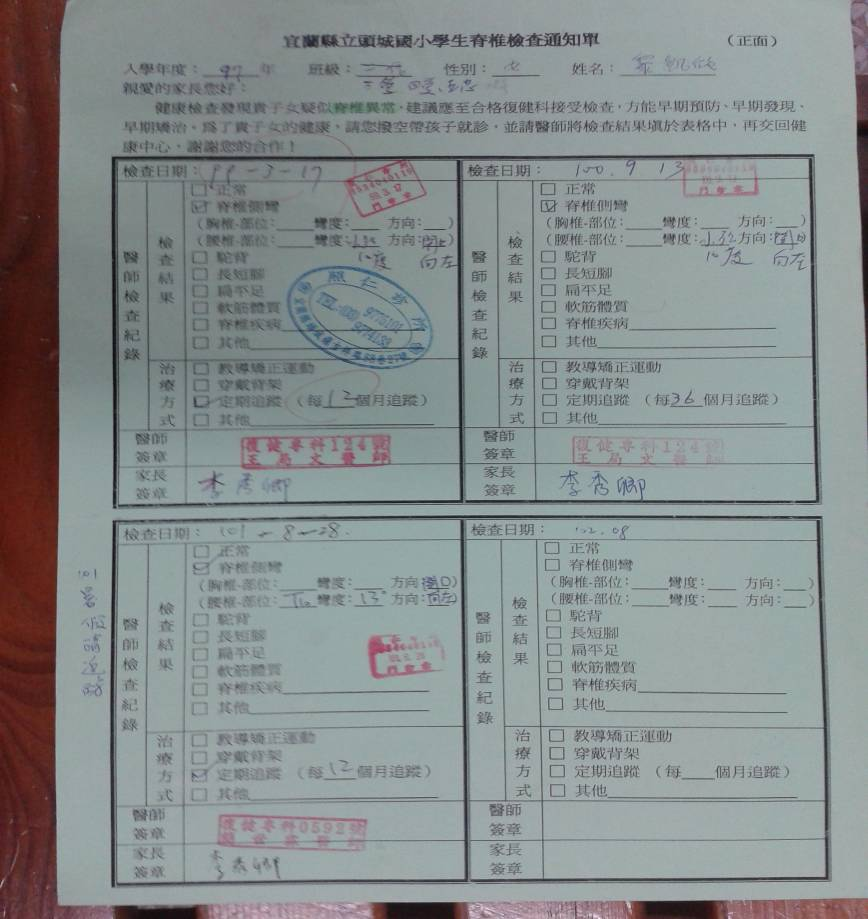 宜蘭縣立頭城國小學生脊椎檢查通知單 （正面）
入學年度：97年 班級： 性別：女 姓名：
親愛的家長您好：
健康檢查發現貴子女疑似脊椎異常，建議應至合格復健科接受檢查，方能早期預防、早期發現、
早期矯治。為了貴子女的健康，請您撥空帶孩子就診，並請醫師將檢查結果填於表格中，再交回健
康中心，謝謝您的合作！
檢查日期：99-3-17
醫師檢查紀錄
檢查結果
□ 正常
☑ 脊椎側彎
（胸椎-部位： 彎度： 方向： ）
（腰椎-部位： 彎度： 方向： ）
10度 向左
□ 駝背
□ 長短腳
□ 扁平足
□ 軟筋體質
□ 脊椎疾病
□ 其他
照仁診所
治療方式
□ 教導矯正運動
□ 穿戴背架
☑ 定期追蹤 （每12個月追蹤）
□ 其他
醫師簽章
復健專科124號
王局文醫師
家長簽章
李秀卿
檢查日期：100.9 13
醫師檢查紀錄
檢查結果
□ 正常
☑ 脊椎側彎
（胸椎-部位： 彎度： 方向： ）
（腰椎-部位： 彎度： 方向： ）
10度 向左
□ 駝背
□ 長短腳
□ 扁平足
□ 軟筋體質
□ 脊椎疾病
□ 其他
治療方式
□ 教導矯正運動
□ 穿戴背架
□ 定期追蹤 （每36個月追蹤）
□ 其他
醫師簽章
復健專科124號
王局文醫師
家長簽章
李秀卿
檢查日期：101-8-28.
醫師檢查紀錄
檢查結果
□ 正常
☑ 脊椎側彎
（胸椎-部位： 彎度： 方向 開口）
（腰椎-部位： 彎度：13° 方向：向左）
□ 駝背
□ 長短腳
□ 扁平足
□ 軟筋體質
□ 脊椎疾病
□ 其他
治療方式
□ 教導矯正運動
□ 穿戴背架
☑ 定期追蹤 （每12個月追蹤）
□ 其他
醫師簽章
復健專科0592號
家長簽章
李秀卿
檢查日期：102.08
醫師檢查紀錄
檢查結果
□ 正常
□ 脊椎側彎
（胸椎-部位： 彎度： 方向： ）
（腰椎-部位： 彎度： 方向： ）
□ 駝背
□ 長短腳
□ 扁平足
□ 軟筋體質
□ 脊椎疾病
□ 其他
治療方式
□ 教導矯正運動
□ 穿戴背架
□ 定期追蹤 （每 個月追蹤）
□ 其他
醫師簽章
家長簽章
101暑假請追蹤